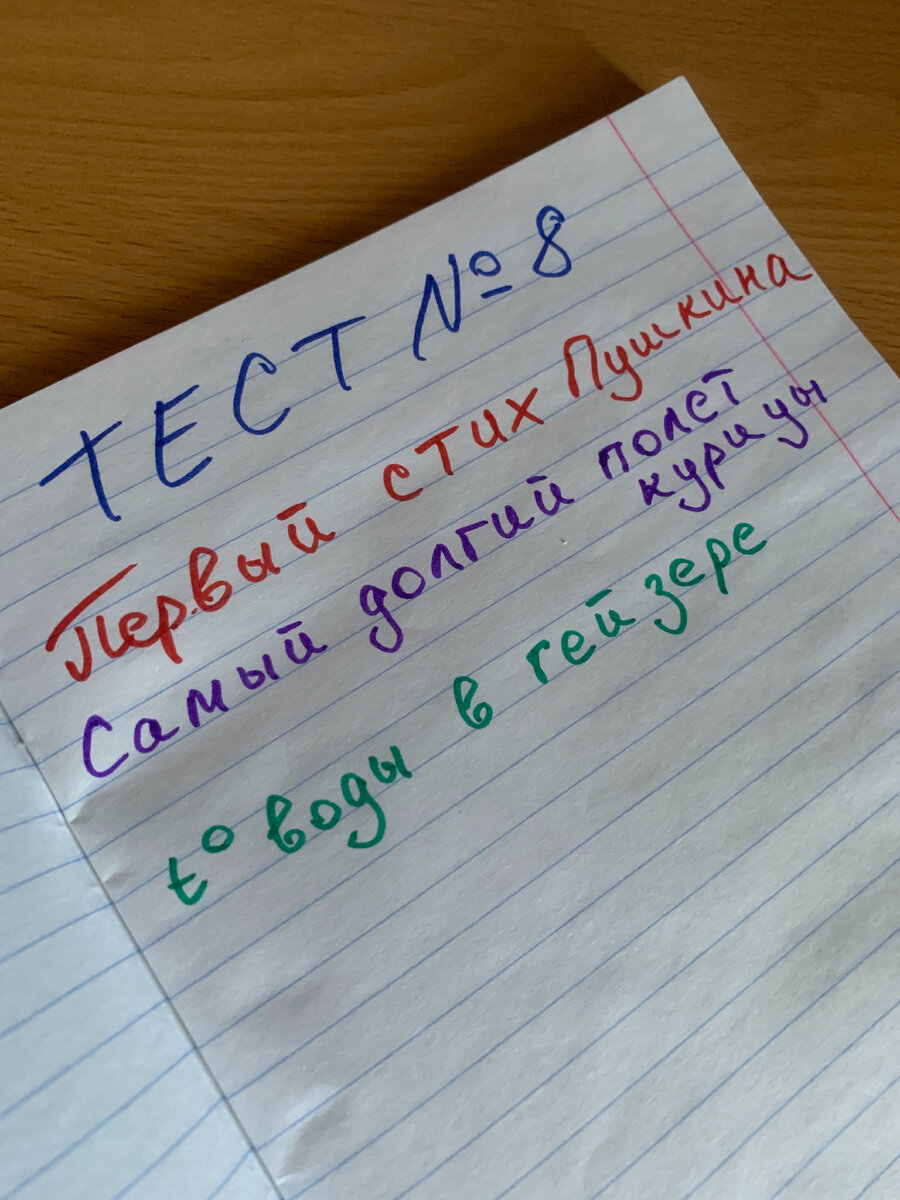 ТЕСТ № 8
Первый стих Пушкина
Самый долгий полет
курицы
t° воды в гейзере